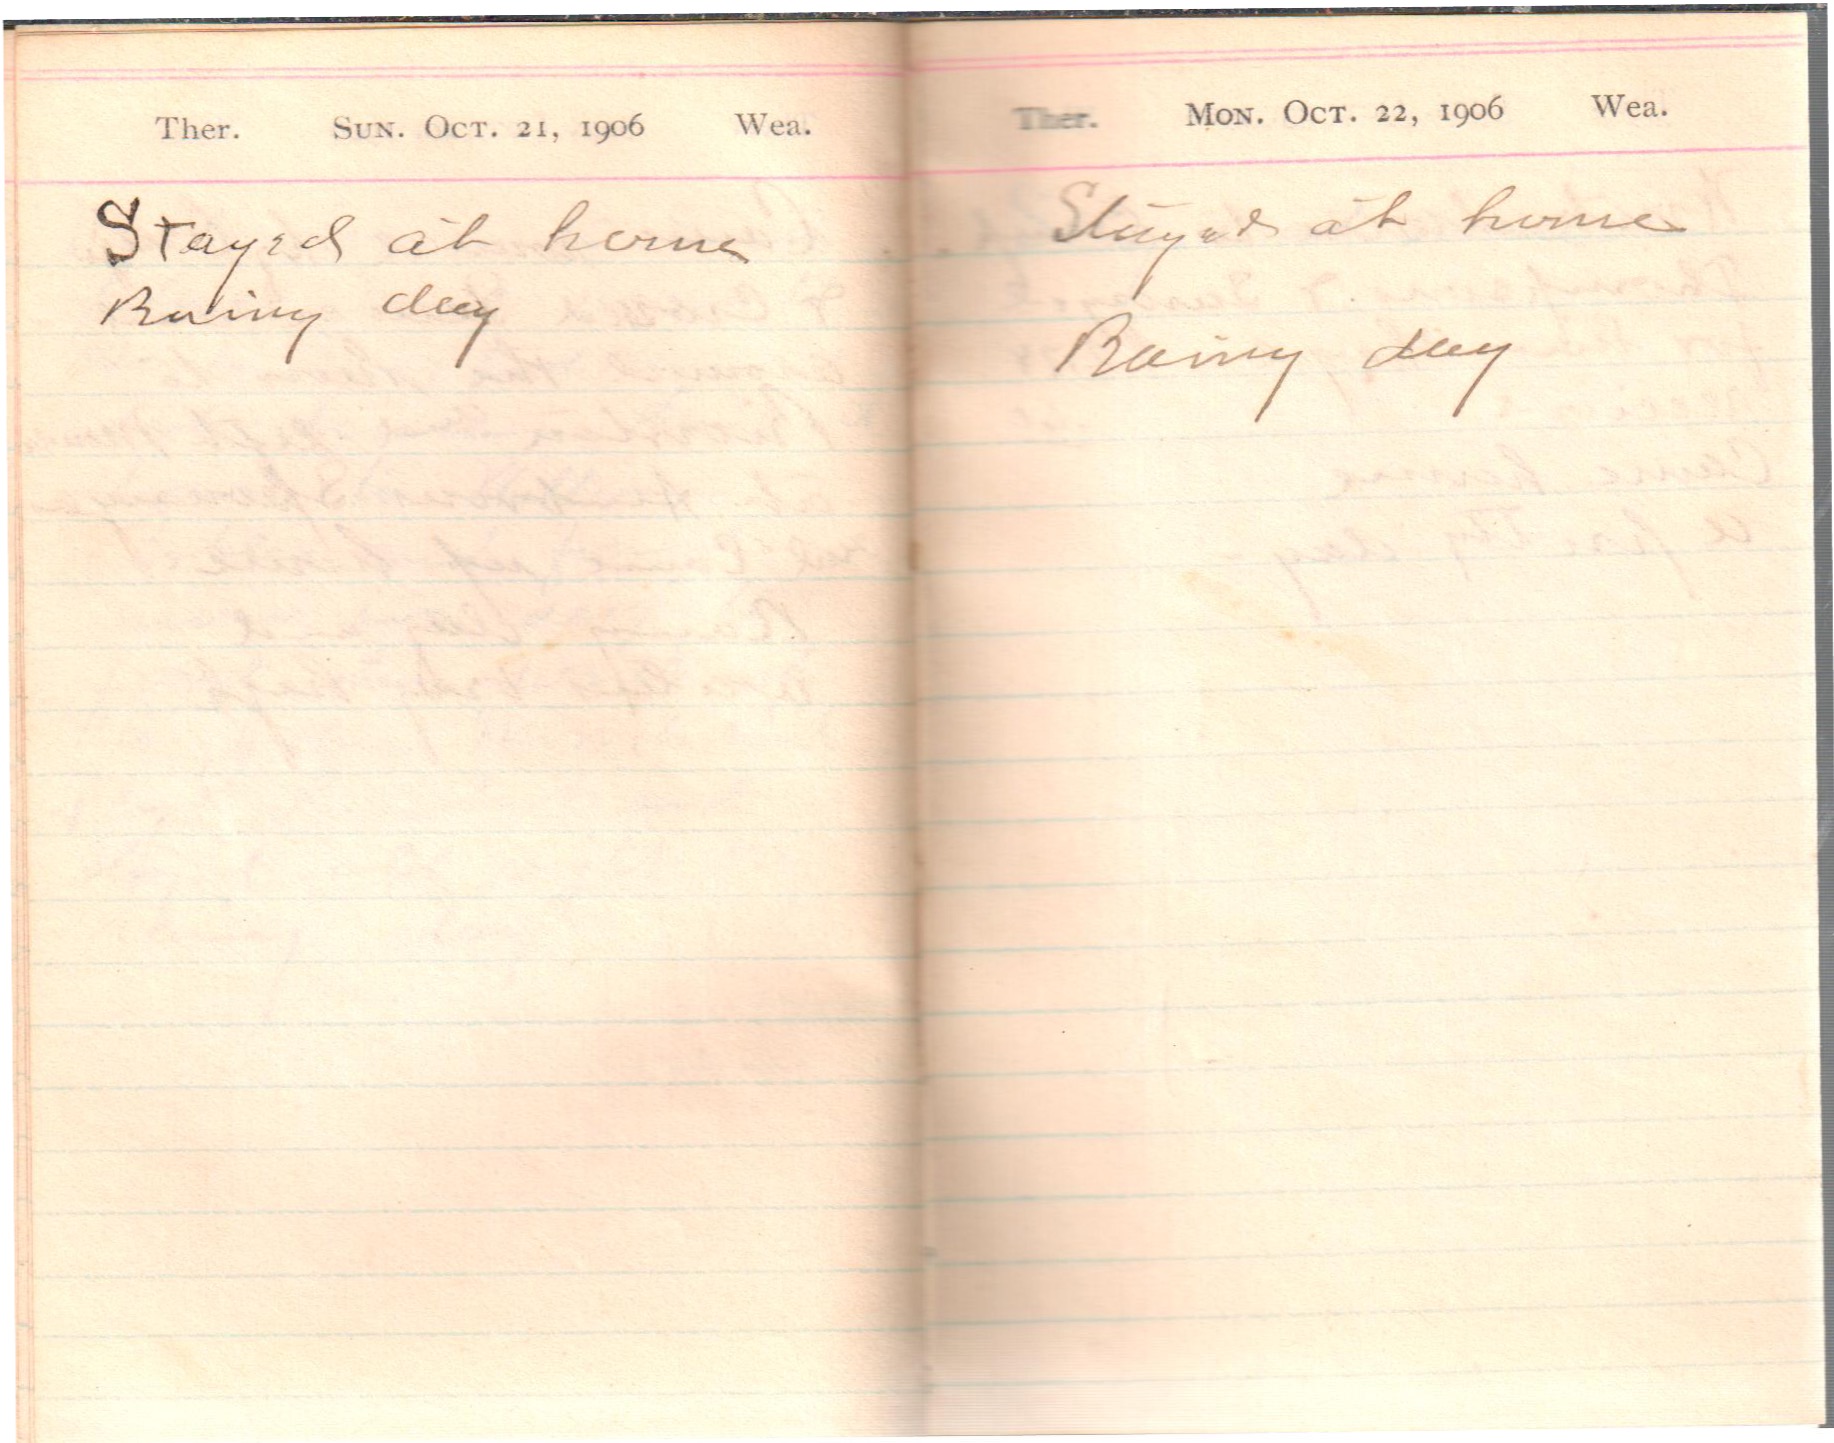 Ther. Sun. Oct. 21, 1906 Wea.
Stayed at home
Rainy day
Ther. Mon. Oct. 22, 1906 Wea.
Stayed at home
Rainy day